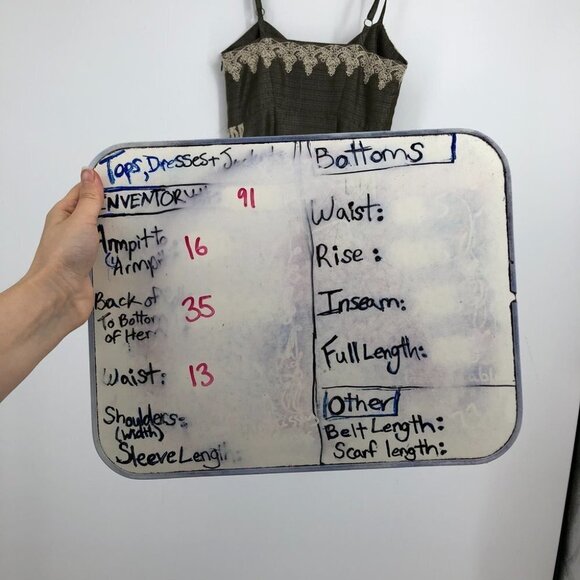 Tops, Dresses +
INVENTORY 91
Armpit to
Armpi 16
Back of
To Bottom 35
of Hem
Waist: 13
Shoulders:
(width)
Sleeve Lengt :
Bottoms
Waist:
Rise:
Inseam:
Full Length:
Other
Belt Length:
Scarf length: